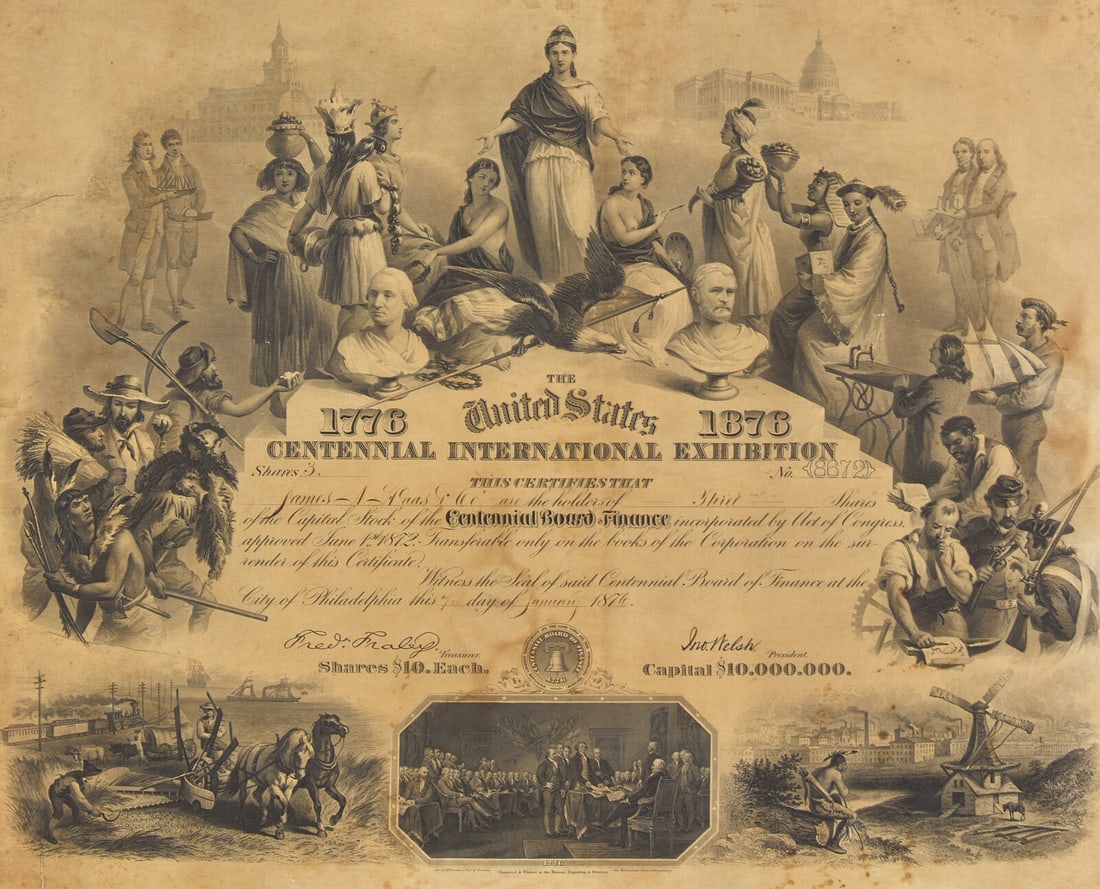 THE
1776 United States 1876
CENTENNIAL INTERNATIONAL EXHIBITION
Shares 3. No. 8672
THIS CERTIFIES THAT
James & Co are the holders of Three Shares
of the Capital Stock of the Centennial Board of Finance incorporated by Act of Congress,
approved June 1st 1872. Transferable only on the books of the Corporation on the sur-
render of this Certificate.
Witness the Seal of said Centennial Board of Finance at the
City of Philadelphia this day of January 1876.
Fredk. Fraley Treasurer.
Jno. Welsh President.
CENTENNIAL BOARD OF FINANCE
1776
Shares $10. Each. Capital $10.000.000.
1776
Engraved & Printed at the Bureau, Engraving & Printing.